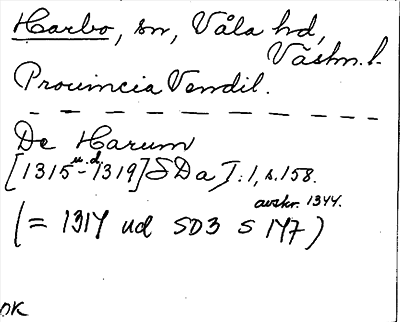 Harbo, sn, Våla hd,
Västm. l.
Provincia Vendil.
De Harum
[1315 u.d. - 1319] SDa I:1, s. 158.
avskr. 1344.
(= 1314 ud SD3 S 147)
DK